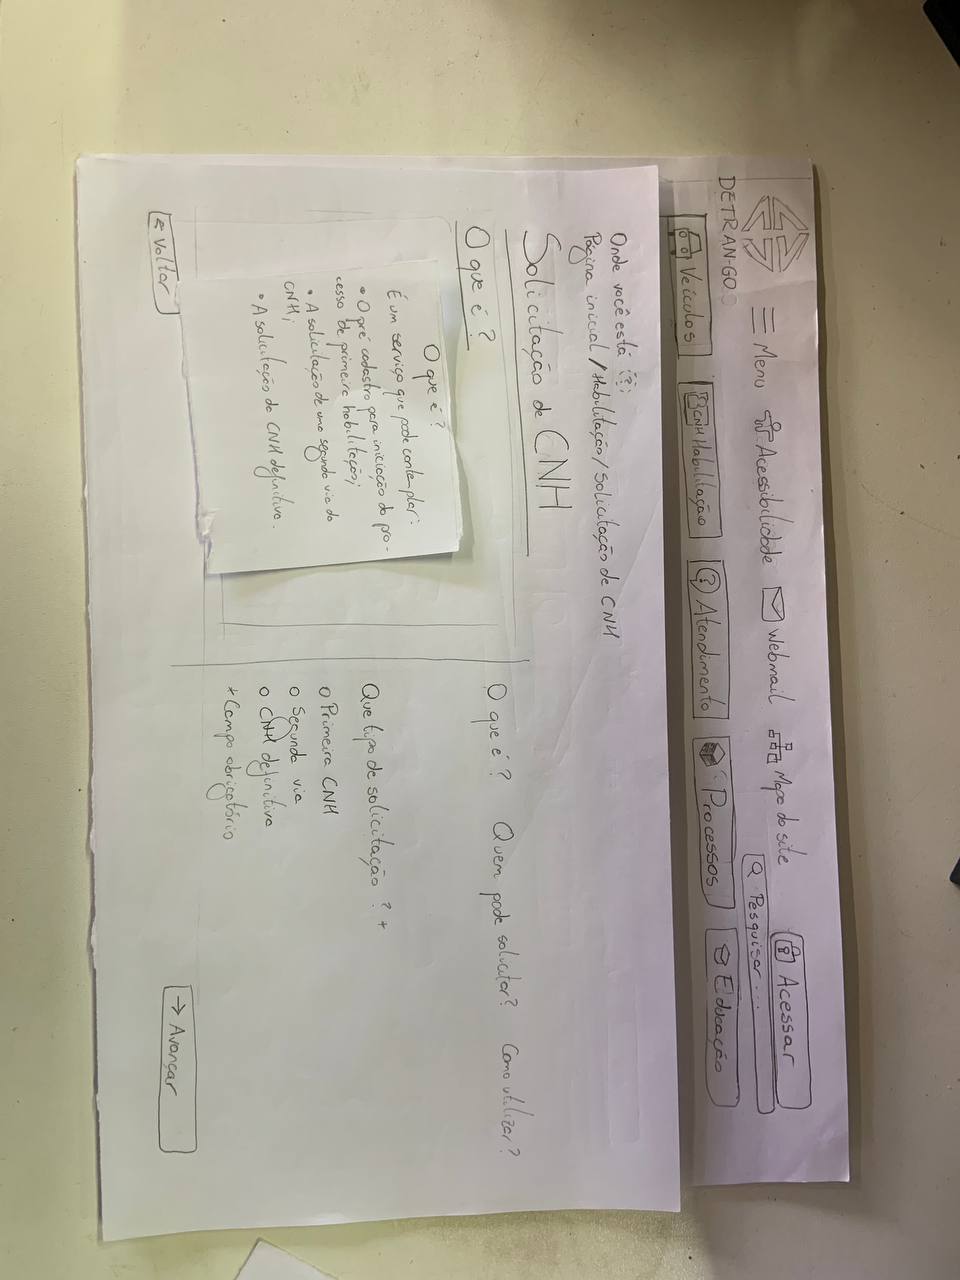 Menu Acessibilidade Webmail Mapa do site Acessar
Pesquisar ...
DETRAN-GO
Veículos CNH Habilitação Atendimento Processos Educação
Onde você está ?
Página inicial / Habilitação / Solicitação de CNH
Solicitação de CNH
O que é ?
O que é ?
É um serviço que pode contemplar:
• O pré cadastro para iniciação do pro-
cesso de primeira habilitação;
• A solicitação de uma segunda via da
CNH;
• A solicitação da CNH definitiva.
← Voltar
O que é ? Quem pode solicitar? Como utilizar?
Que tipo de solicitação ? *
○ Primeira CNH
○ Segunda via
○ CNH definitiva
* Campo obrigatório
→ Avançar